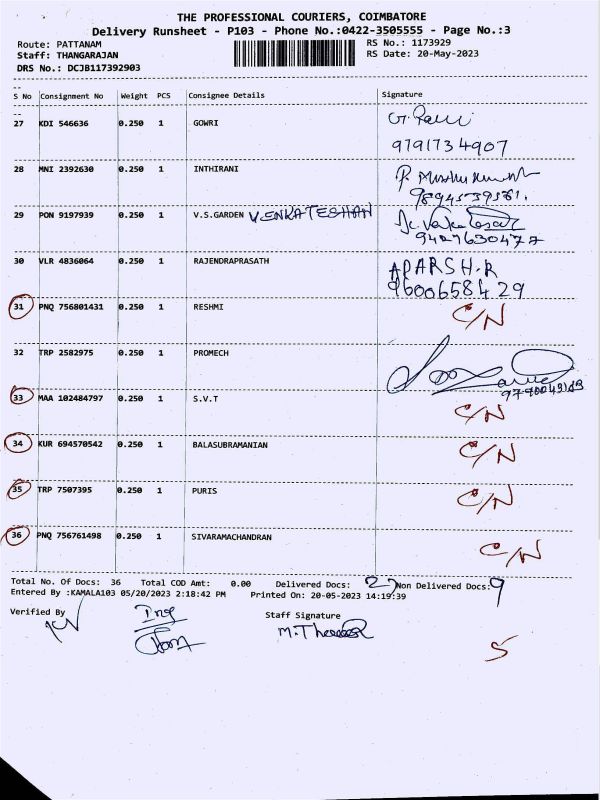 THE PROFESSIONAL COURIERS, COIMBATORE
Delivery Runsheet - P103 - Phone No.:0422-3505555 - Page No.:3
Route: PATTANAM RS No.: 1173929
Staff: THANGARAJAN RS Date: 20-May-2023
DRS No.: DCJB117392903
S No Consignment No Weight PCS Consignee Details Signature
27 KDI 546636 0.250 1 GOWRI
9791734907
28 MNI 2392630 0.250 1 INTHIRANI
29 PON 9197939 0.250 1 V.S.GARDEN VENKATESHAN
9487630477
30 VLR 4836064 0.250 1 RAJENDRAPRASATH APARSH.R
9600658429
31 PNQ 756801431 0.250 1 RESHMI C/N
32 TRP 2582975 0.250 1 PROMECH
33 MAA 102484797 0.250 1 S.V.T C/N
34 KUR 694570542 0.250 1 BALASUBRAMANIAN C/N
35 TRP 7507395 0.250 1 PURIS C/N
36 PNQ 756761498 0.250 1 SIVARAMACHANDRAN C/N
Total No. Of Docs: 36 Total COD Amt: 0.00 Delivered Docs: 27 Non Delivered Docs: 9
Entered By :KAMALA103 05/20/2023 2:18:42 PM Printed On: 20-05-2023 14:19:39
Verified By Staff Signature
5